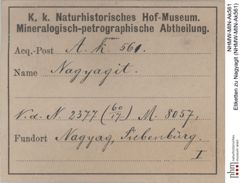 K. k. Naturhistorisches Hof-Museum.
Mineralogisch-petrographische Abtheilung.
Acq.-Post A. k. 561.
Name Nagyagit.
V. d. N. 2377 (60/17) M. 8057.
Fundort Nagyag, Siebenbürg.
I
NHMW-MIN-Ak561
Etiketten zu Nagyagit (NHMW-MIN-Ak561)
nhm